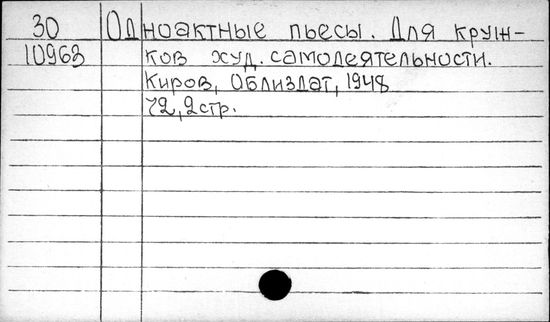 30 Одноактные пьесы. Для круж-
10963 ков худ. самодеятельности.
Киров, Облиздат, 1948
72, 2 стр.